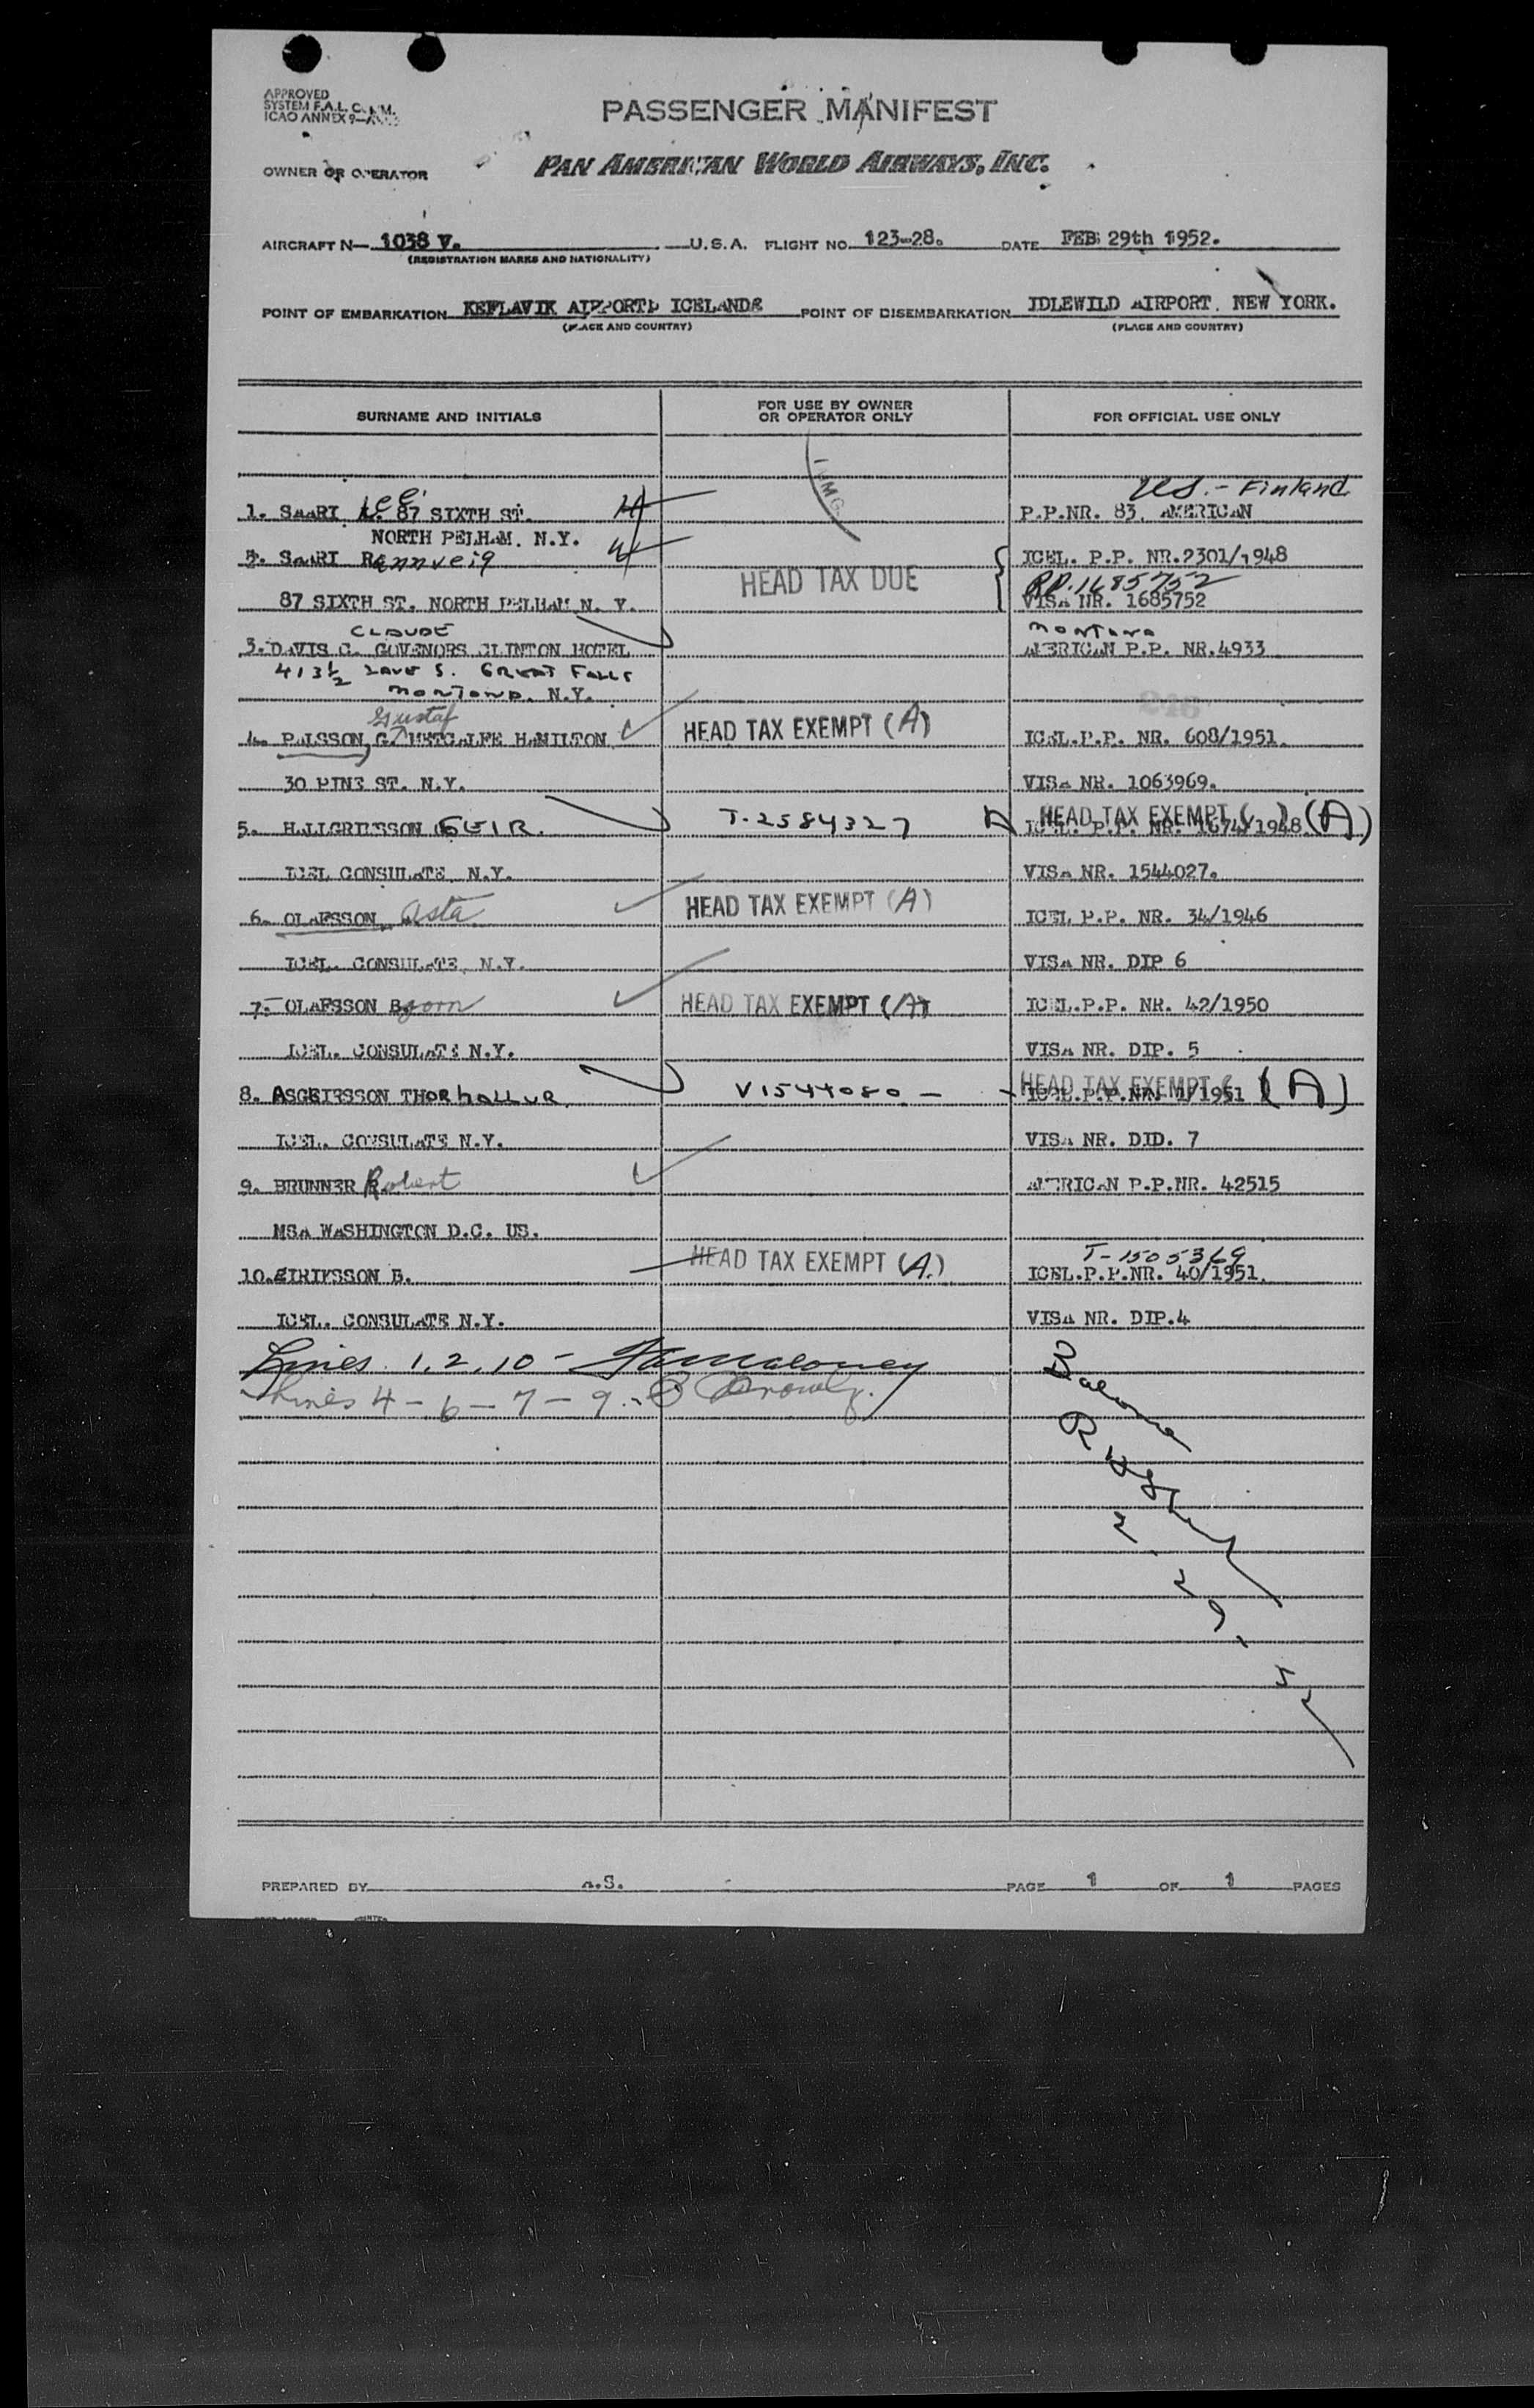 APPROVED
SYSTEM F.A.L. COMM.
ICAO ANNEX 9—
PASSENGER MANIFEST
OWNER OR OPERATOR PAN AMERICAN WORLD AIRWAYS, INC.
AIRCRAFT N— 1038 V. U.S.A. FLIGHT NO. 123-28. DATE FEB 29th 1952.
(REGISTRATION MARKS AND NATIONALITY)
POINT OF EMBARKATION KEFLAVIK AIRPORT, ICELAND POINT OF DISEMBARKATION IDLEWILD AIRPORT. NEW YORK.
(PLACE AND COUNTRY) (PLACE AND COUNTRY)
SURNAME AND INITIALS FOR USE BY OWNER OR OPERATOR ONLY FOR OFFICIAL USE ONLY
IMMG
Lee US. - Finland
1. SAARI 87 SIXTH ST. P.P.NR. 83, AMERICAN
NORTH PELHAM. N.Y.
SAARI Rannveig ICEL. P.P. NR.2301/1948
HEAD TAX DUE RP.1685752
87 SIXTH ST. NORTH PELHAM N. Y. VISA NR. 1685752
CLAUDE montana
3. DAVIS C. GOVENORS CLINTON HOTEL AMERICAN P.P. NR.4933
413½ 2AVE S. GREAT FALLS
montana. N.Y.
246
Gustaf
4. PALSSON, G. METCALFE HAMILTON HEAD TAX EXEMPT (A) ICEL.P.P. NR. 608/1951.
30 PINE ST. N.Y. VISA NR. 1063969.
HEAD TAX EXEMPT ( ) (A)
5. HALLGRIMSSON GEIR. T-2584327 ICEL. P.P. NR. 1674/1948
ICEL CONSULATE, N.Y. VISA NR. 1544027.
6. OLAFSSON, Asta HEAD TAX EXEMPT (A) ICEL P.P. NR. 34/1946
ICEL. CONSULATE, N.Y. VISA NR. DIP 6
7. OLAFSSON Bjorn HEAD TAX EXEMPT (A) ICEL.P.P. NR. 42/1950
ICEL. CONSULATE N.Y. VISA NR. DIP. 5
HEAD TAX EXEMPT ( (A)
8. ASGEIRSSON THORhALLUR V1544080 — ICEL.P.P.NR. 1/1951
ICEL. CONSULATE N.Y. VISA NR. DID. 7
9. BRUNNER Robert AMERICAN P.P.NR. 42515
MSA WASHINGTON D.C. US.
HEAD TAX EXEMPT (A.) T-1505369
10. EIRIKSSON B. ICEL.P.P.NR. 40/1951.
ICEL. CONSULATE N.Y. VISA NR. DIP.4
Lines 1, 2, 10 -
Lines 4 - 6 - 7 - 9. -
2.29.52
PREPARED BY A.S. PAGE 1 OF 1 PAGES